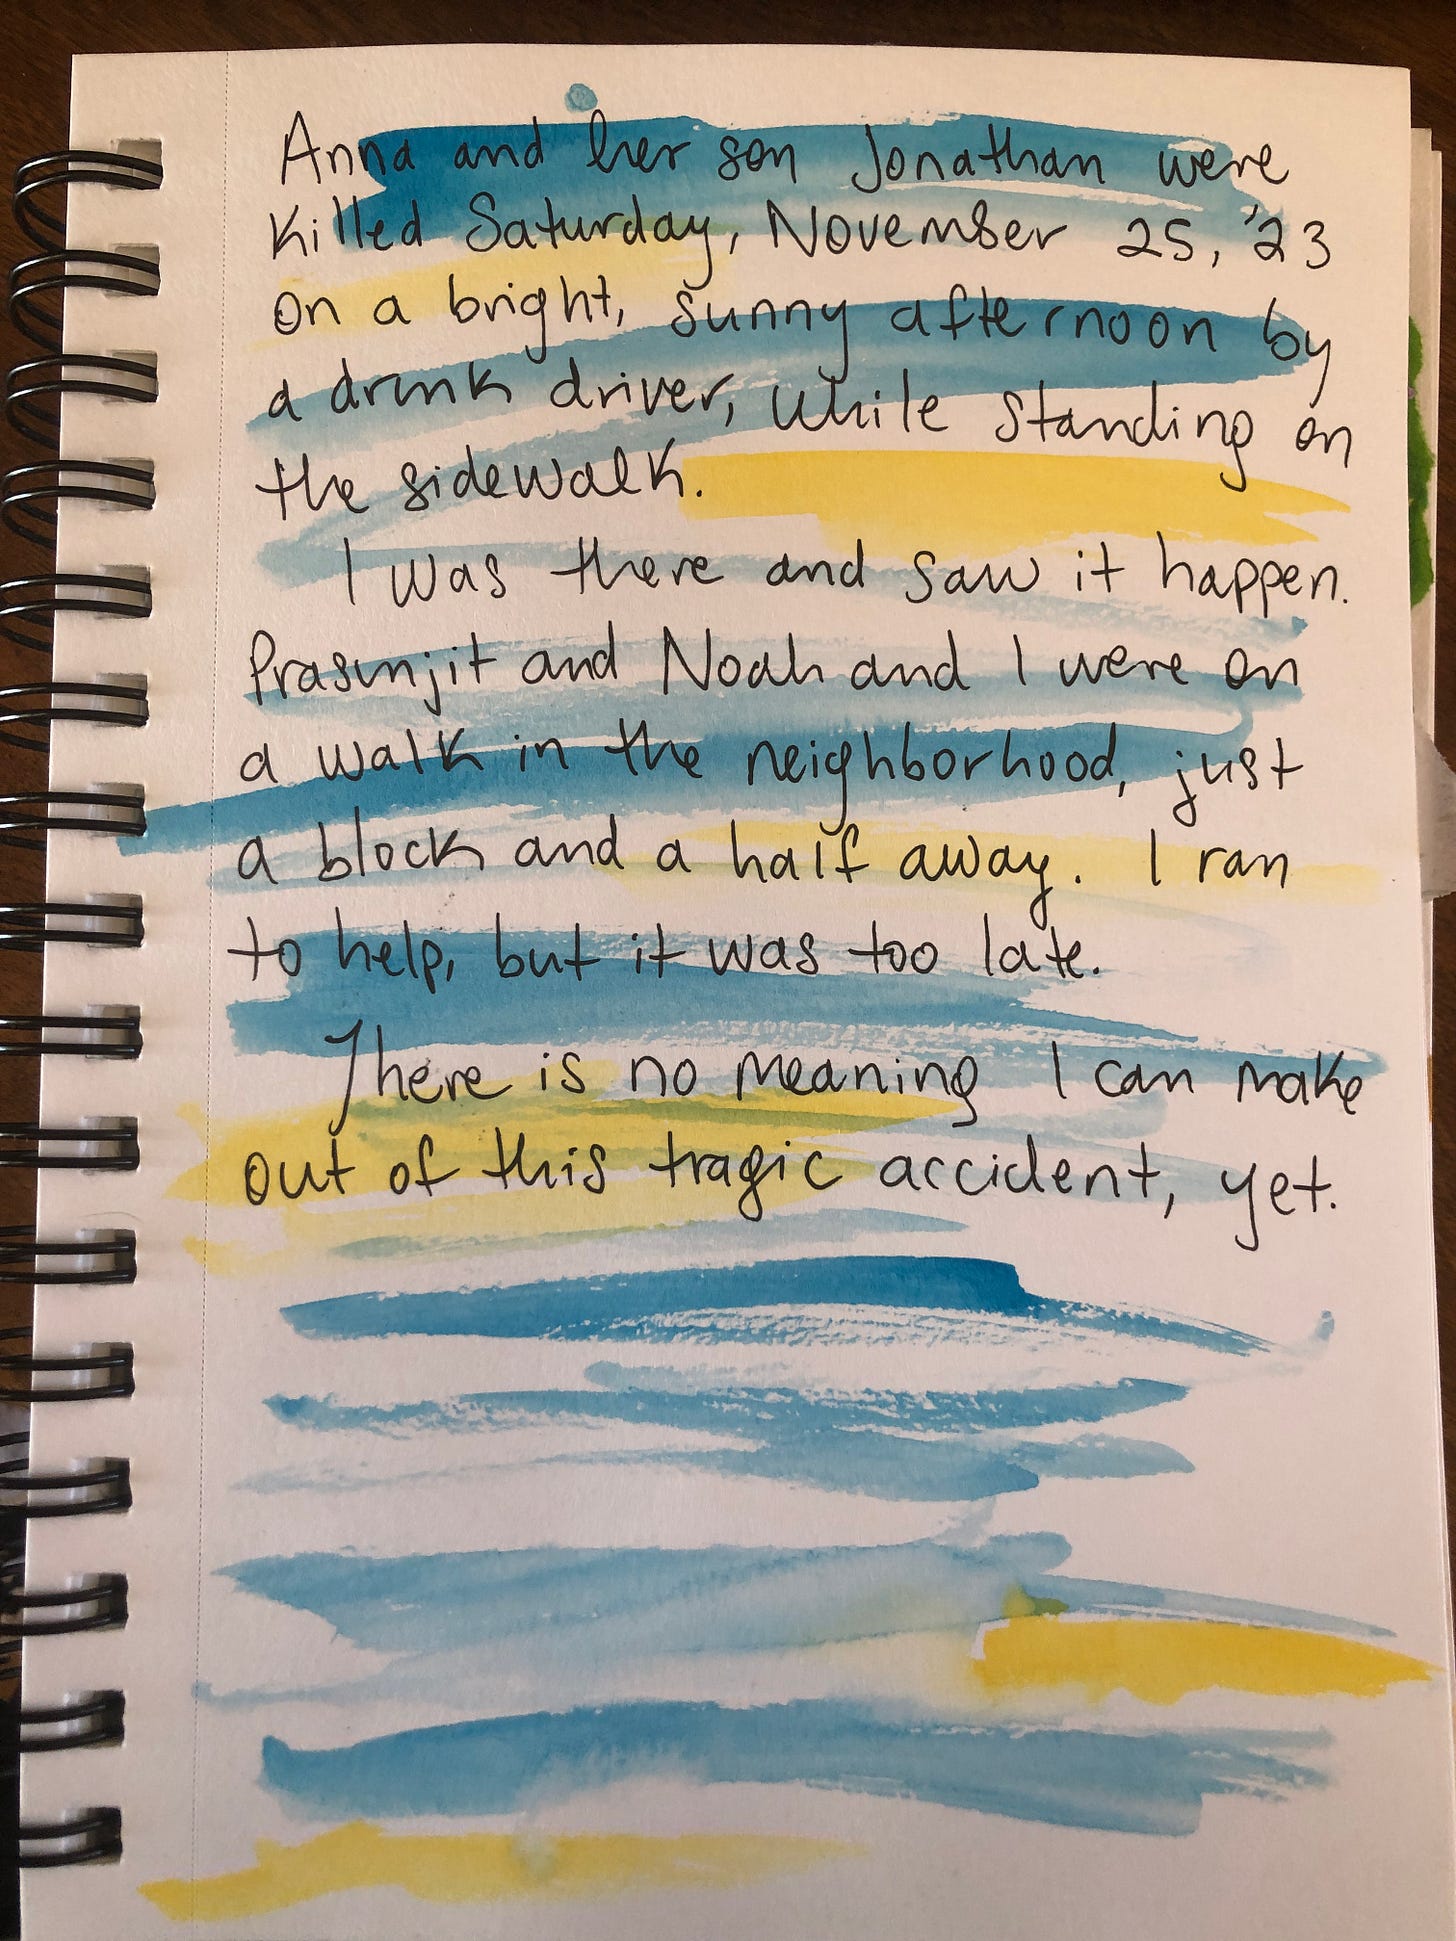 Anna and her son Jonathan were
Killed Saturday, November 25, '23
on a bright, sunny afternoon by
a drunk driver, while standing on
the sidewalk.
I was there and saw it happen.
Prasunjit and Noah and I were on
a walk in the neighborhood, just
a block and a half away. I ran
to help, but it was too late.
There is no meaning I can make
out of this tragic accident, yet.